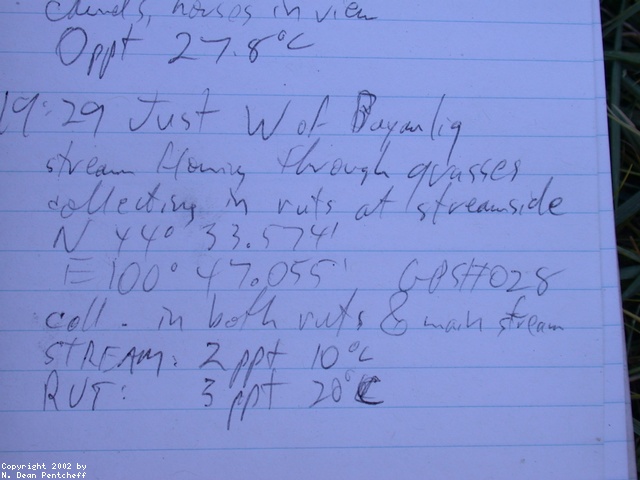 camels, houses in view
0ppt 27.8°C
19:29 Just W of Bayanlig
stream flowing through grasses
collecting in ruts at streamside
N 44° 33.574'
E 100° 47.055' GPS#028
coll. in both ruts & main stream
STREAM: 2 ppt 10°C
RUT: 3 ppt 20°C
Copyright 2002 by
N. Dean Pentcheff